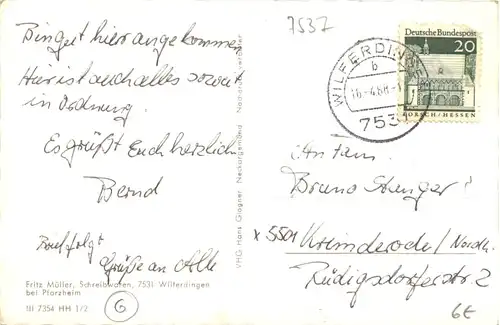 7537
Bin gut hier angekommen
Hier ist auch alles soweit
in Ordnung.
Es grüßt Euch herzlich
Bernd
Brief folgt
Grüße an Alle
Fritz Müller, Schreibwaren, 7531 Wilferdingen
bei Pforzheim
III 7354 HH 1/2
6
VHG. Hans Glogner Neckargemünd
Deutsche Bundespost
20
LORSCH/HESSEN
WILFERDINGEN
b
16.-4.68.-
7531
An Fam.
Bruno Stenger
x 5501 Krimderode/Nordh.
Rüdigsdorferstr. 2
6€